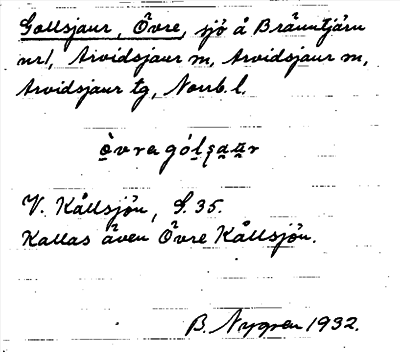 Gollsjaur, Övre, sjö å Bränntjärn
nr1, Arvidsjaur sn, Arvidsjaur sn,
Arvidsjaur tg, Norrb. l.
òvra gólʂau̯r
V. Kållsjön, S. 35.
Kallas även Övre Kållsjön.
B. Nygren 1932.